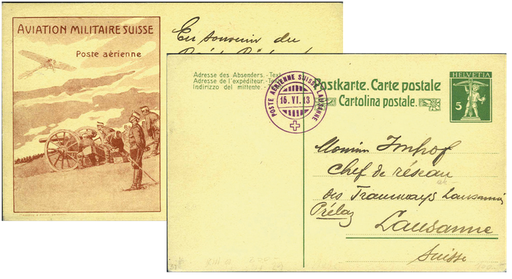 AVIATION MILITAIRE SUISSE
Poste aérienne
En souvenir du
Adresse des Absenders.
Adresse de l'expéditeur.
Indirizzo del mittente.
Postkarte. Carte postale
Cartolina postale.
HELVETIA
5
POSTE AÉRIENNE SUISSE LAUSANNE
15. VI. 13
Monsieur Imhof
Chef de réseau
des Tramways Lausannois
Prélaz
Lausanne
Suisse